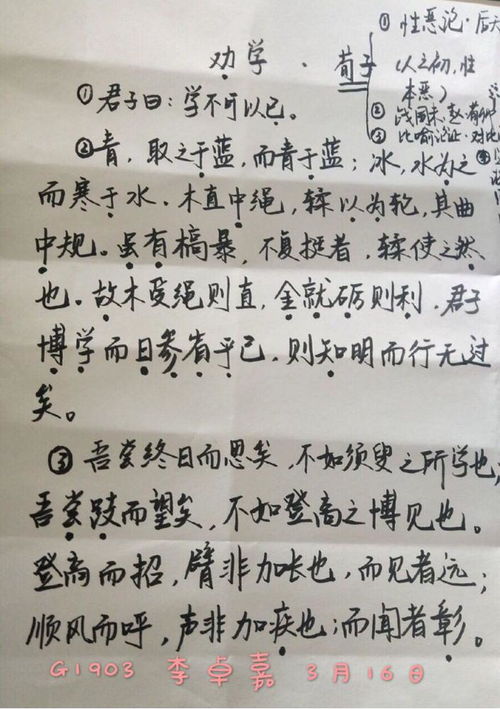 劝学 · 荀子
①性恶论·后天
(人之初,性
本恶)
②战国末.赵.荀卿
③比喻论证·对比
①君子曰:学不可以已。
②青,取之于蓝,而青于蓝;冰,水为之
而寒于水.木直中绳,𫐓以为轮,其曲
中规。虽有槁暴,不复挺者,𫐓使之然
也.故木受绳则直,金就砺则利.君子
博学而日参省乎己,则知明而行无过
矣。
③吾尝终日而思矣,不如须臾之所学也;
吾尝跂而望矣,不如登高之博见也。
登高而招,臂非加长也,而见者远;
顺风而呼,声非加疾也;而闻者彰。
G1903 李卓嘉 3月16日